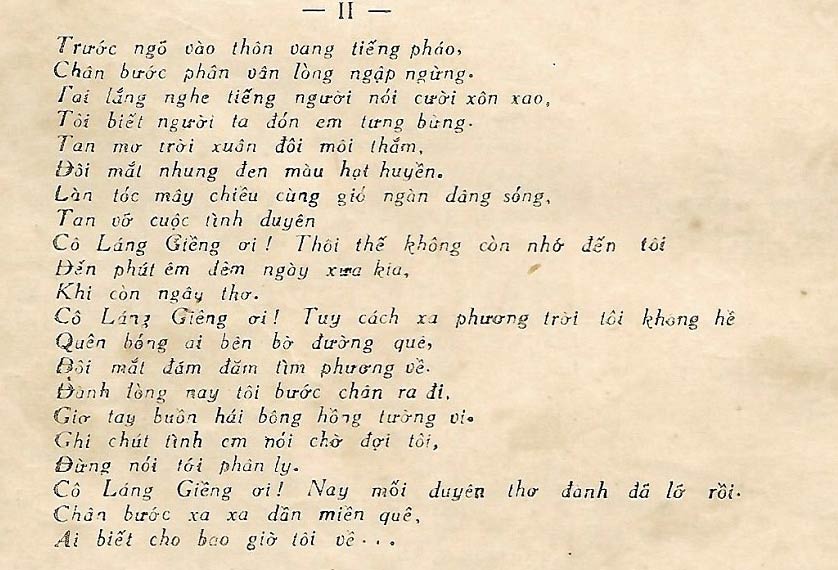 — II —
Trước ngõ vào thôn vang tiếng pháo,
Chân bước phân vân lòng ngập ngừng.
Tai lắng nghe tiếng người nói cười xôn xao,
Tôi biết người ta đón em tưng bừng.
Tan mơ trời xuân đôi môi thắm,
Đôi mắt nhung đen màu hạt huyền.
Làn tóc mây chiều cùng gió ngàn dâng sóng,
Tan vỡ cuộc tình duyên
Cô Láng Giềng ơi! Thôi thế không còn nhớ đến tôi
Đến phút êm đềm ngày xưa kia,
Khi còn ngây thơ.
Cô Láng Giềng ơi! Tuy cách xa phương trời tôi không hề
Quên bóng ai bên bờ đường quê,
Đôi mắt đăm đăm tìm phương về.
Đành lòng nay tôi bước chân ra đi,
Giơ tay buồn hái bông hồng tường vi.
Ghi chút tình em nói chờ đợi tôi,
Đừng nói tới phân ly.
Cô Láng Giềng ơi! Nay mối duyên thơ đành đã lỡ rồi.
Chân bước xa xa dần miền quê,
Ai biết cho bao giờ tôi về . . .